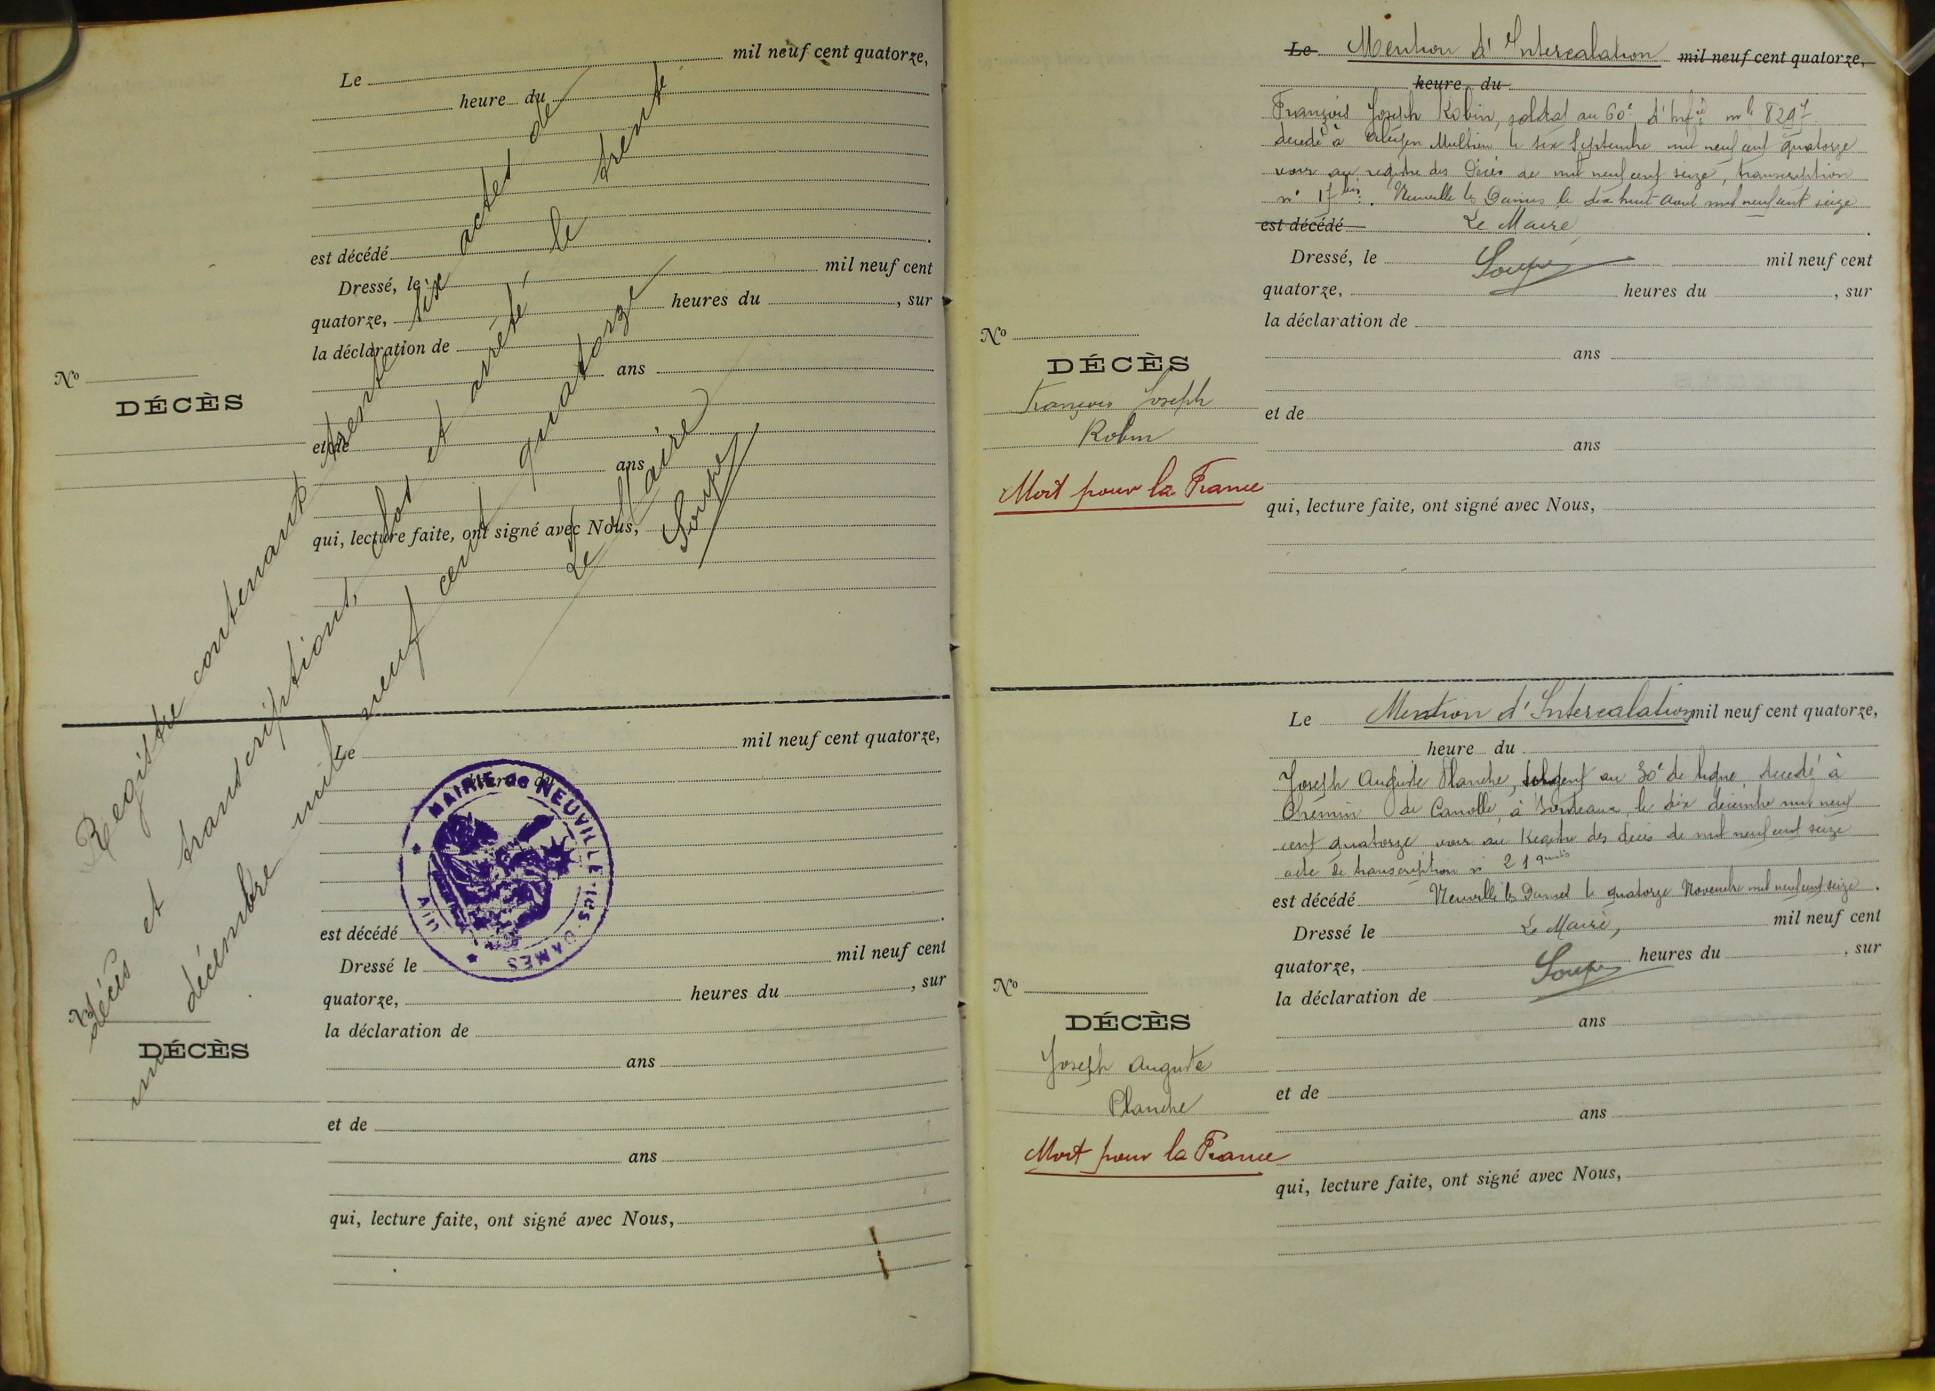 Le mil neuf cent quatorze,
heure du
est décédé
Dressé, le mil neuf cent
quatorze, heures du , sur
la déclaration de
ans
No
DÉCÈS
et de
ans
qui, lecture faite, ont signé avec Nous,
Registre contenant trente six actes de
décès et transcriptions, clos et arrêté, le trente
un décembre mil neuf cent quatorze
Le Maire
Soupe
Le mil neuf cent quatorze,
heure du
MAIRIE de NEUVILLE-les-DAMES
AIN
est décédé
Dressé le mil neuf cent
quatorze, heures du , sur
la déclaration de
No
DÉCÈS
ans
et de
ans
qui, lecture faite, ont signé avec Nous,
Le Mention d'Intercalation mil neuf cent quatorze,
heure du
François Joseph Robin, soldat au 60e d'Infie mle 8297
décédé à Multien le six Septembre mil neuf cent quatorze
voir au registre des Décès de mil neuf cent seize, transcription
n° 17 bis. Neuville les Dames le dix huit Avril mil neuf cent seize
est décédé Le Maire
Dressé, le Soupe mil neuf cent
quatorze, heures du , sur
la déclaration de
No
ans
DÉCÈS
François Joseph
Robin
et de
ans
Mort pour la France
qui, lecture faite, ont signé avec Nous,
Le Mention d'Intercalation mil neuf cent quatorze,
heure du
Joseph Auguste Planche, sergent au 30e de ligne décédé à
Chemin de Canolle, à Bordeaux le dix décembre mil neuf
cent quatorze voir au Registre des décès de mil neuf cent seize
acte de transcription n° 21
est décédé Neuville les Dames le quatorze Novembre mil neuf cent seize.
Dressé le Le Maire, mil neuf cent
quatorze, Soupe heures du , sur
la déclaration de
No
DÉCÈS
ans
Joseph Auguste
Planche
et de
ans
Mort pour la France
qui, lecture faite, ont signé avec Nous,